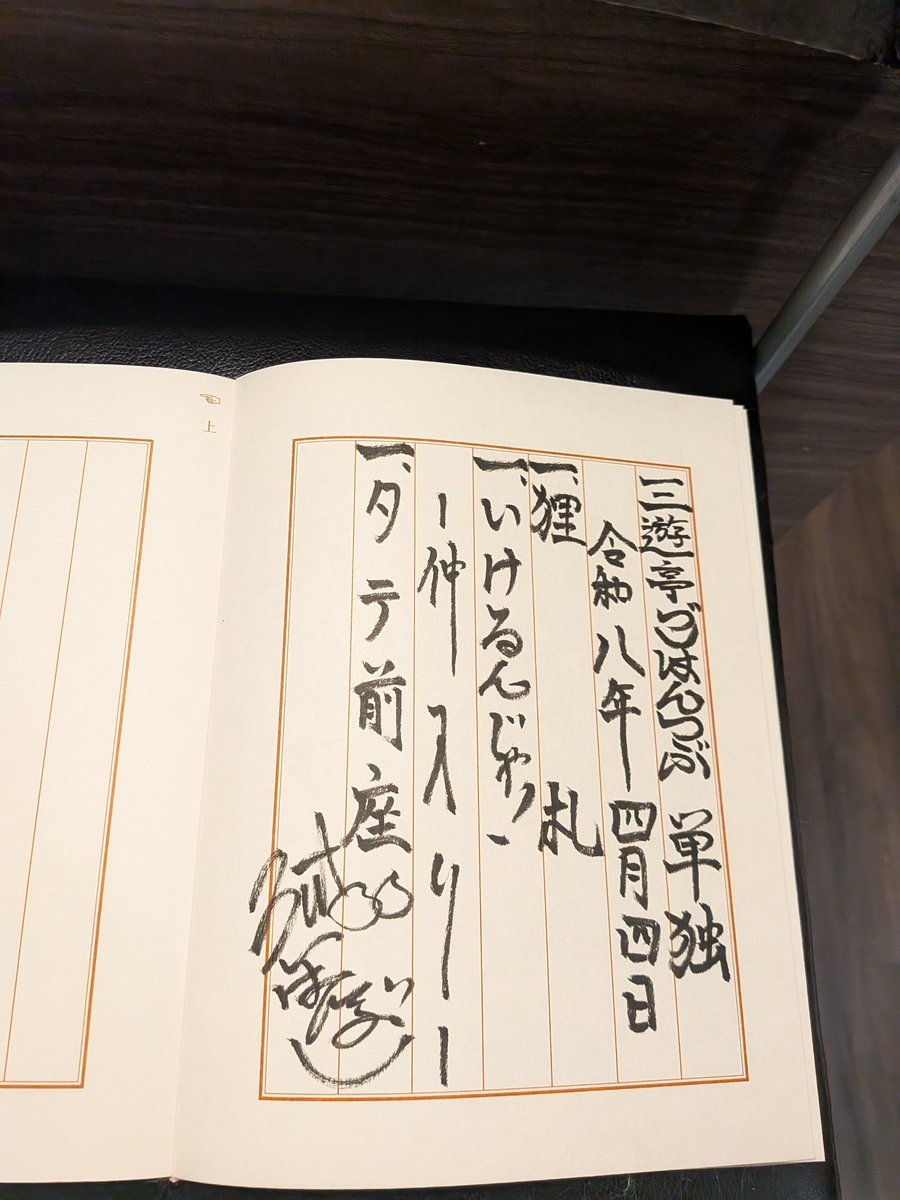 三遊亭ごはんつぶ 単独
令和八年 四月四日
一、狸 札
一、いけるんじゃ!
ー仲入りー
一、タテ前座
上